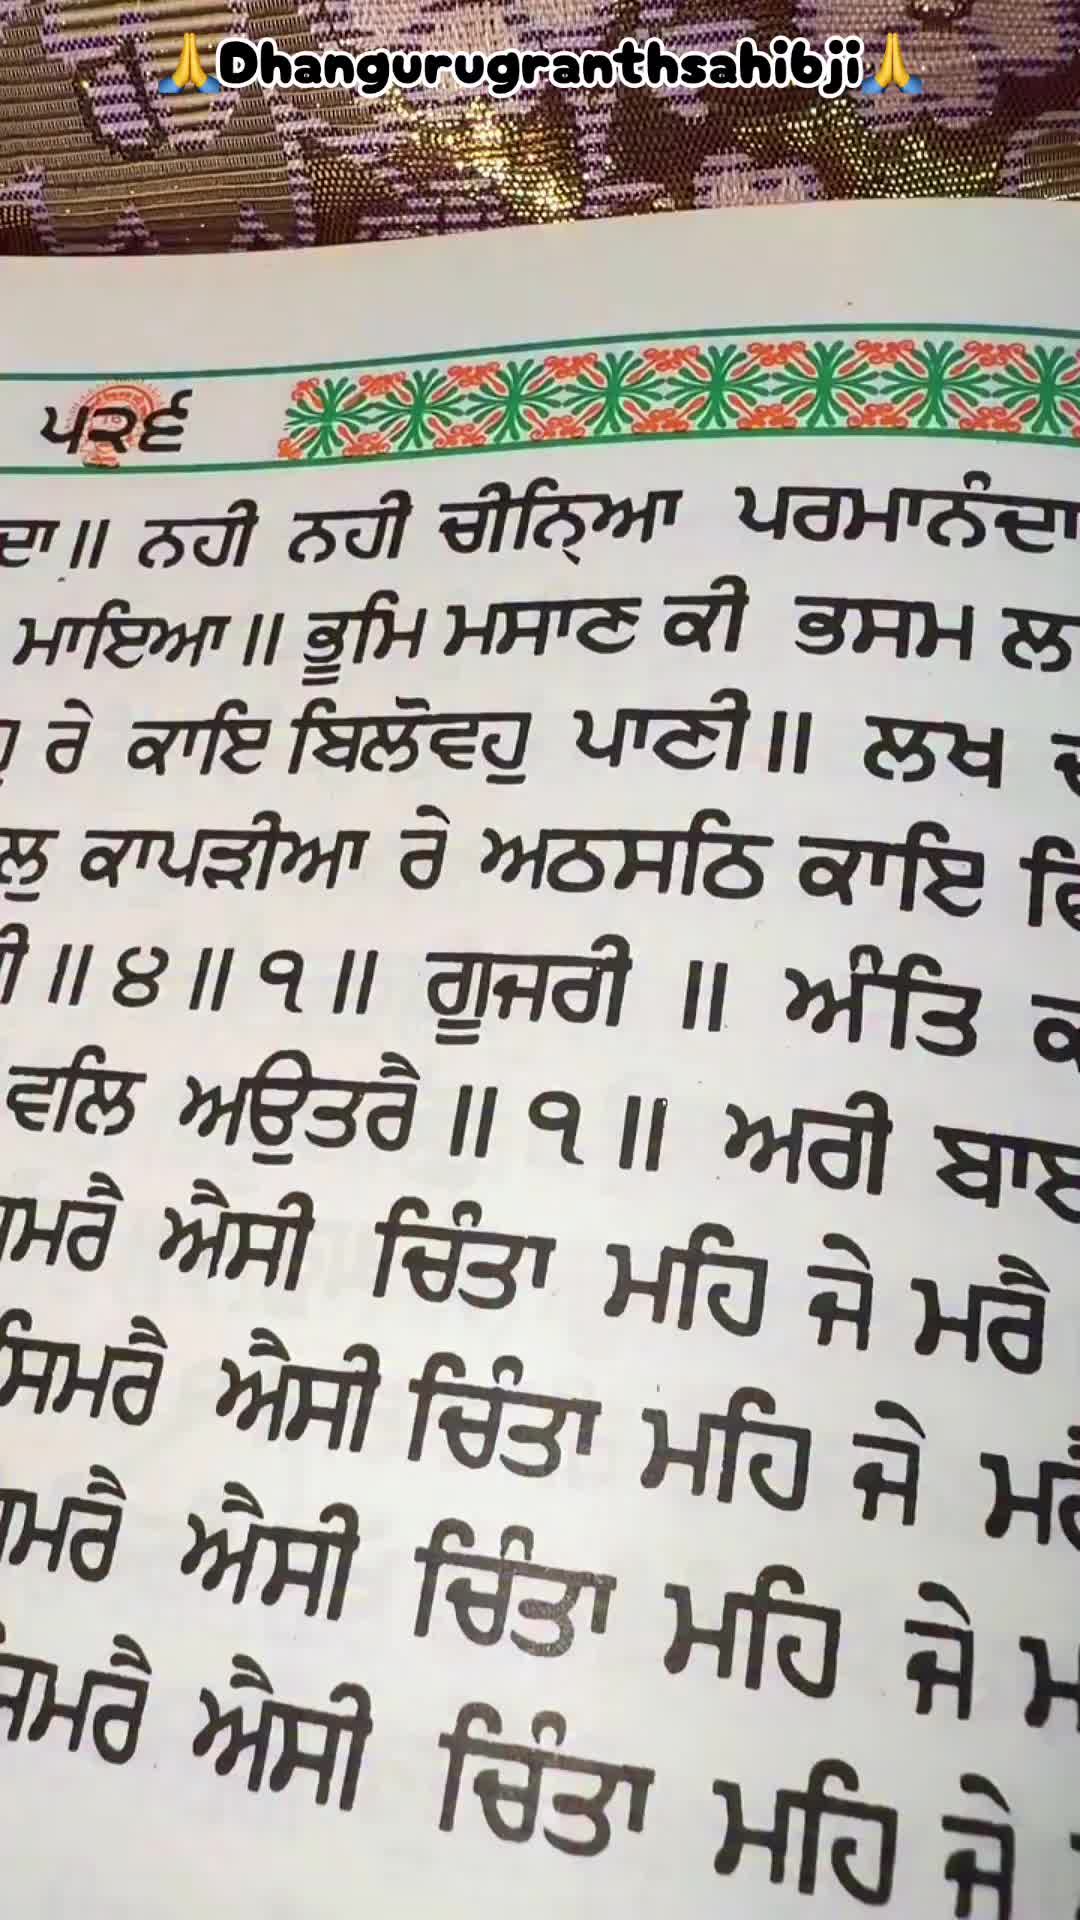 🙏Dhangurugranthsahibji🙏
੫੨੬
ਦਾ॥ ਨਹੀ ਨਹੀ ਚੀਨਿ੍ਆ ਪਰਮਾਨੰਦਾ
ਮਾਇਆ॥ ਭੂਮਿ ਮਸਾਣ ਕੀ ਭਸਮ ਲ
ਰੇ ਕਾਇ ਬਿਲੋਵਹੁ ਪਾਣੀ॥ ਲਖ
ਲੁ ਕਾਪੜੀਆ ਰੇ ਅਠਸਠਿ ਕਾਇ
॥੪॥੧॥ ਗੂਜਰੀ ॥ ਅੰਤਿ ਕ
ਵਲਿ ਅਉਤਰੈ॥੧॥ ਅਰੀ ਬਾਈ
ਮਰੈ ਐਸੀ ਚਿੰਤਾ ਮਹਿ ਜੇ ਮਰੈ
ਸਿਮਰੈ ਐਸੀ ਚਿੰਤਾ ਮਹਿ ਜੇ ਮਰੈ
ਮਰੈ ਐਸੀ ਚਿੰਤਾ ਮਹਿ ਜੇ ਮ
ਸਿਮਰੈ ਐਸੀ ਚਿੰਤਾ ਮਹਿ ਜੇ